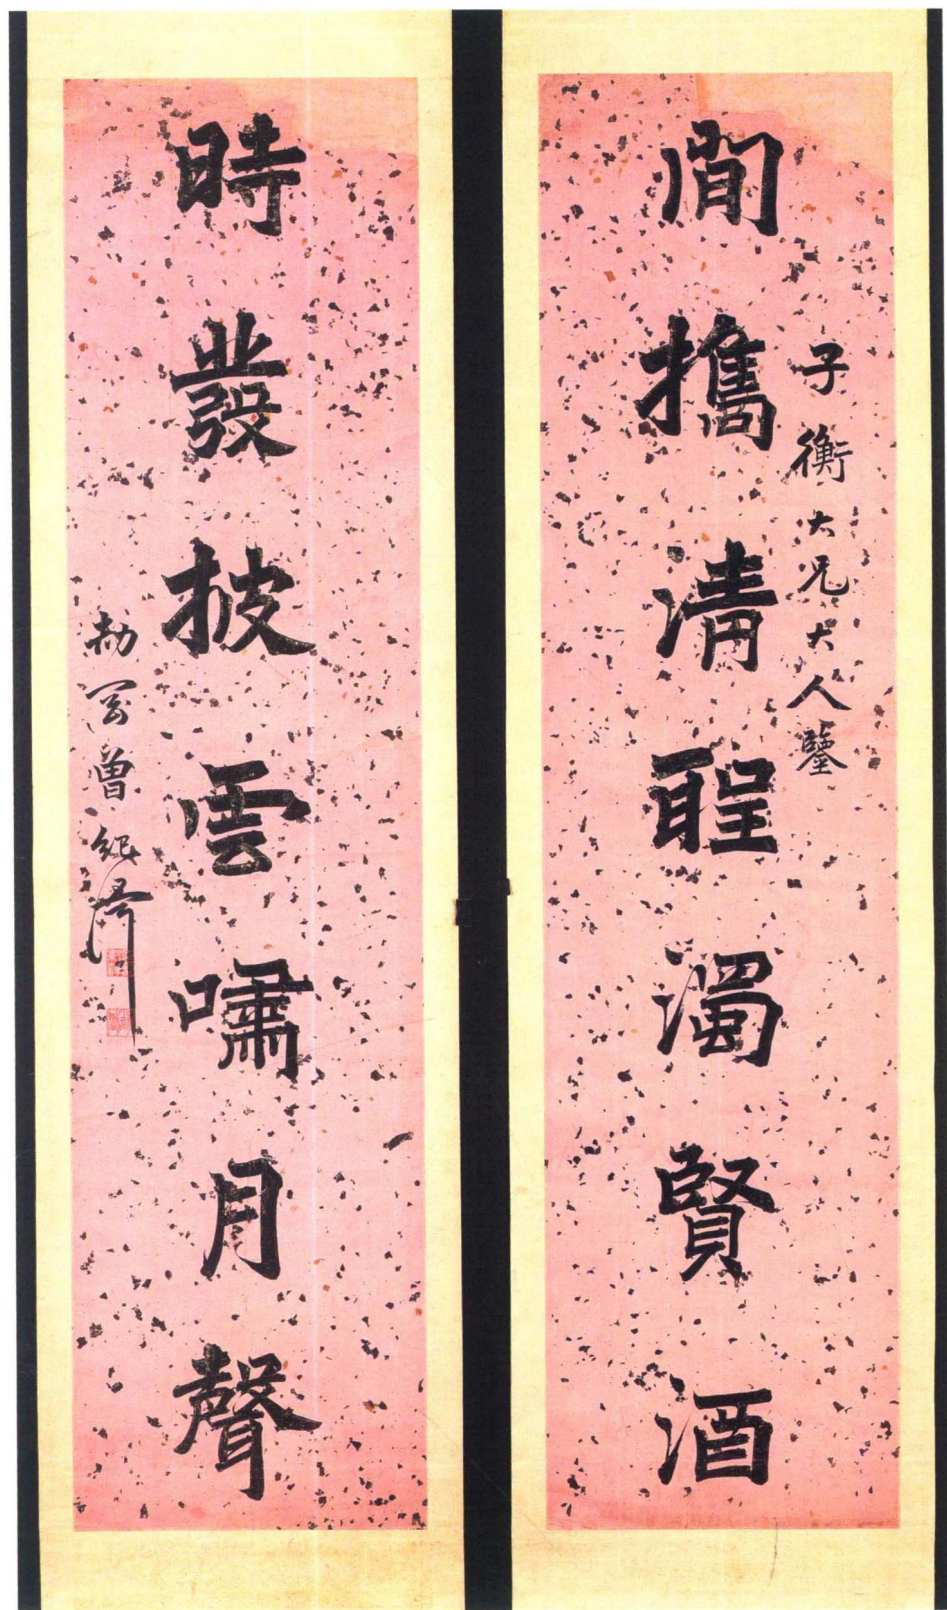 閒攜清聖濁賢酒
子衡大兄大人鑒
時發披雲嘯月聲
劼剛曾紀澤